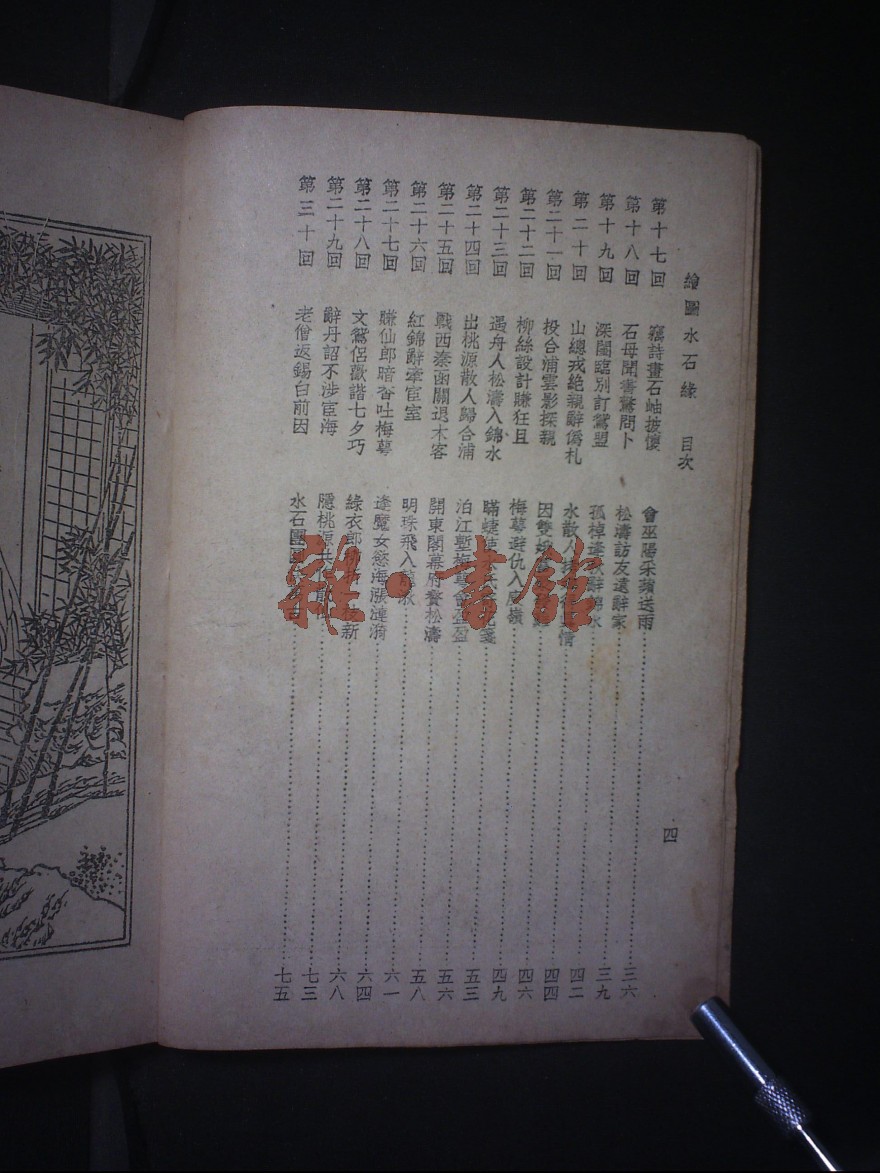 繪圖水石緣 目次 四
第十七回 竊詩畫石岫披懷 會巫陽采蘋送雨 三六
第十八回 石母聞書驚問卜 松濤訪友遠辭家 三九
第十九回 深閨臨別訂鴛盟 孤棹逢秋辭錦水 四二
第二十回 山總戎絶親辭僞札 水散人 情 四四
第二十一回 投合浦雲影探親 因雙娥 四六
第二十二回 柳絲設計賺狂且 梅萼避仇入庾嶺 四九
第二十三回 遇舟人松濤入錦水 瞞蜨使 箋 五三
第二十四回 出桃源散人歸合浦 泊江塹梅萼會盈盈 五六
第二十五回 戰西秦函關退木客 開東閣幕府贅松濤 五八
第二十六回 紅錦辭牽宦室 明珠飛入 六一
第二十七回 賺仙郎暗香吐梅萼 逢魔女慾海漲漣漪 六四
第二十八回 文鴛侶歡諧七夕巧 綠衣郎 新 六八
第二十九回 辭丹詔不涉宦海 隱桃源共 七三
第三十回 老僧返錫白前因 水石團圓 七五
雜·書館